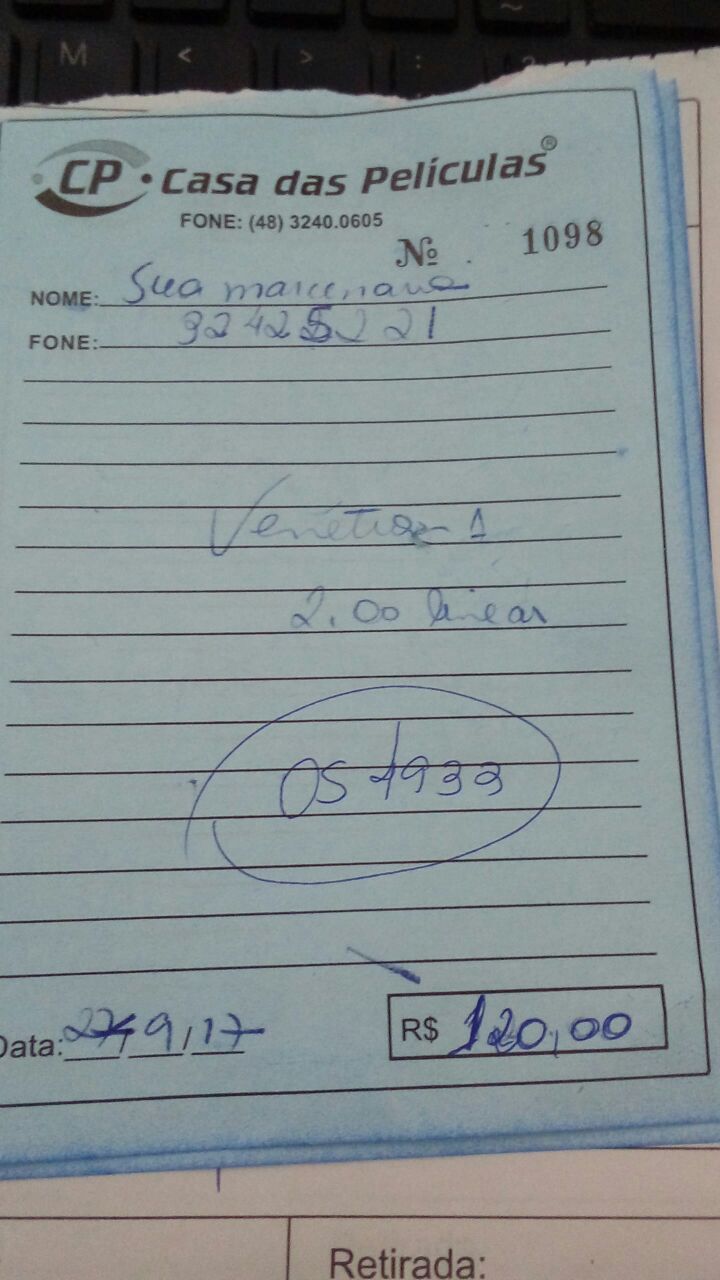 M < > :
CP · Casa das Películas ®
FONE: (48) 3240.0605
Nº 1098
NOME: Sua marcenaria
FONE: 32425221
2.00 linear
OS 1933
Data: 27/9/17
R$ 120,00
Retirada: